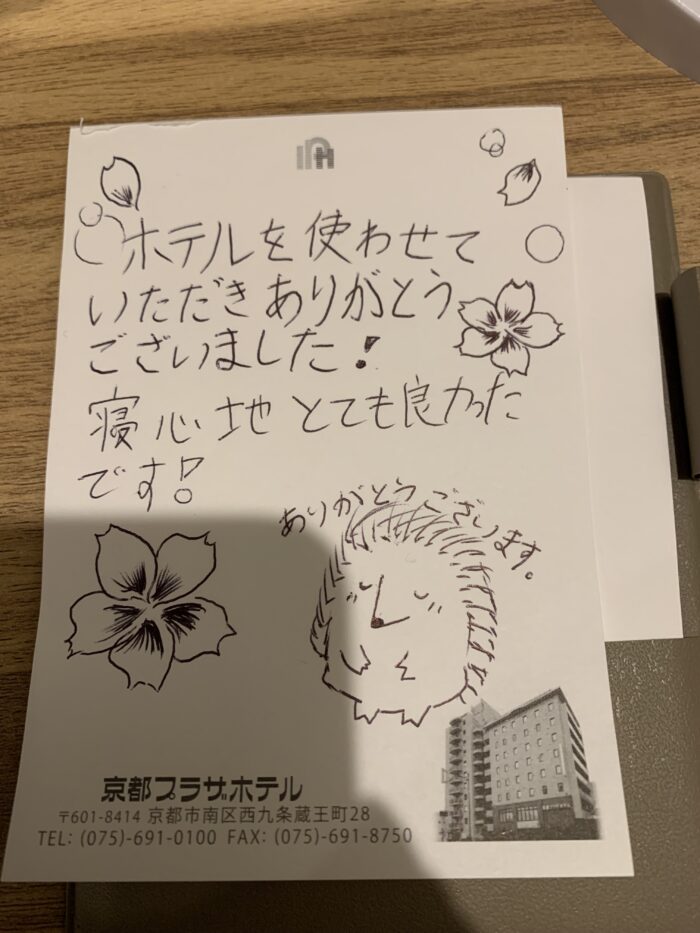 ホテルを使わせて
いただきありがとう
ございました!
寝心地とても良かった
です!
ありがとうございます。
京都プラザホテル
〒601-8414 京都市南区西九条蔵王町28
TEL: (075)-691-0100 FAX: (075)-691-8750